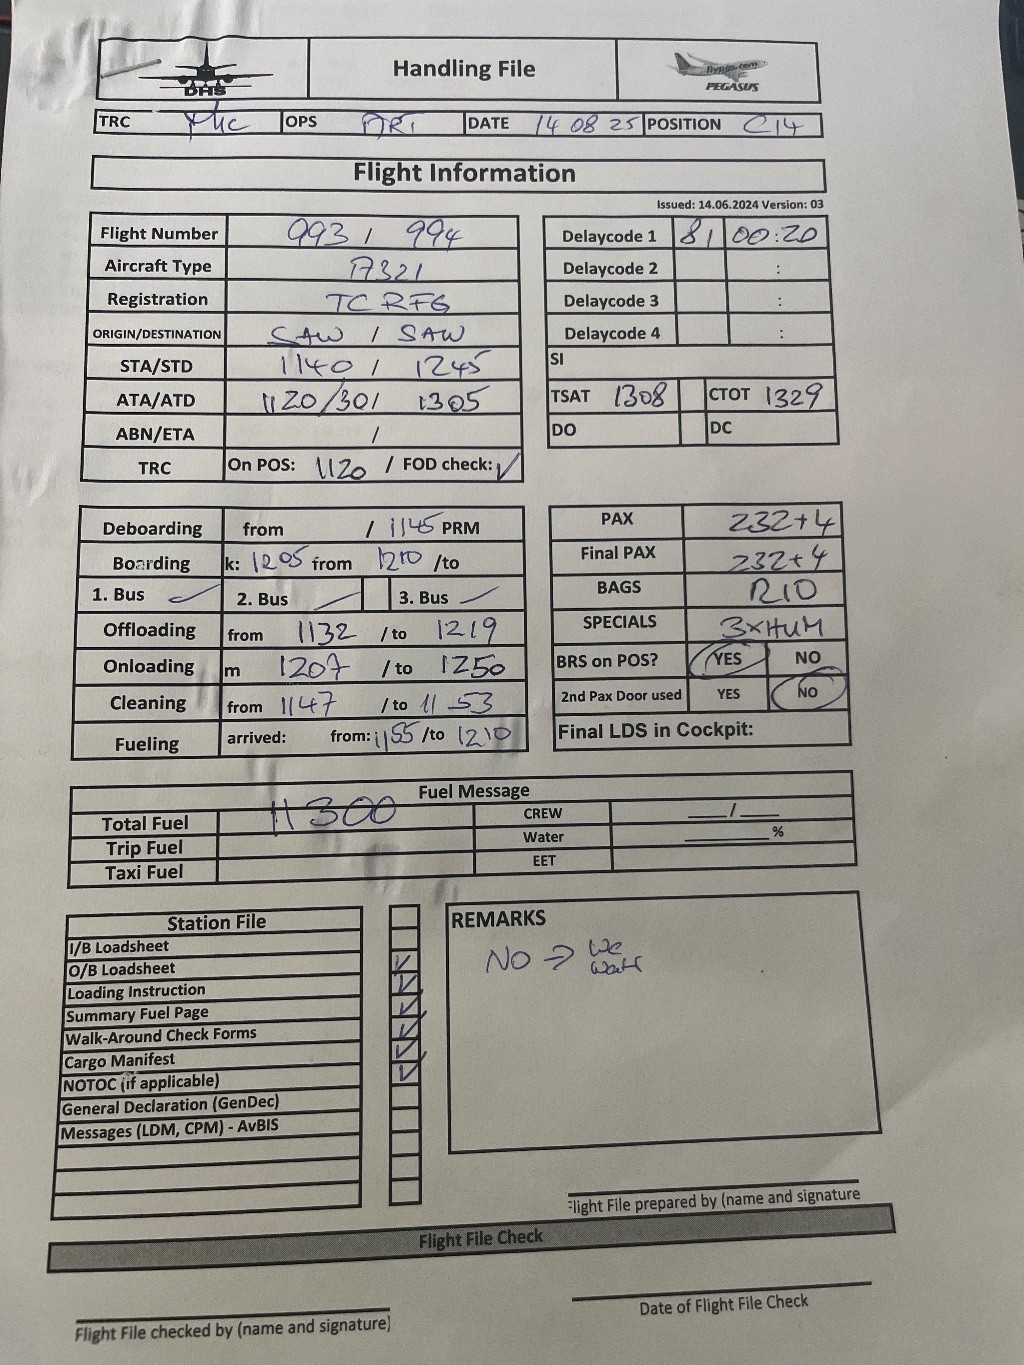 DHS Handling File flypgs.com PEGASUS
TRC OPS DATE 14 08 25 POSITION C14
Flight Information
Issued: 14.06.2024 Version: 03
Flight Number 993 / 994
Aircraft Type A321
Registration TC RFG
ORIGIN/DESTINATION SAW / SAW
STA/STD 1140 / 1245
ATA/ATD 1120/30/ 1305
ABN/ETA /
TRC On POS: 1120 / FOD check: ✓
Delaycode 1 81 00:20
Delaycode 2 :
Delaycode 3 :
Delaycode 4 :
SI
TSAT 1308 CTOT 1329
DO DC
Deboarding from / 1145 PRM
Boarding k: 1205 from 1210 /to
1. Bus 2. Bus 3. Bus
Offloading from 1132 / to 1219
Onloading m 1207 / to 1250
Cleaning from 1147 / to 11 53
Fueling arrived: from: 1155 /to 1210
PAX 232+4
Final PAX 232+4
BAGS
SPECIALS 3xHUM
BRS on POS? YES NO
2nd Pax Door used YES NO
Final LDS in Cockpit:
Fuel Message
Total Fuel 11300 CREW ___/___
Trip Fuel Water ______%
Taxi Fuel EET
Station File
I/B Loadsheet
O/B Loadsheet ✓
Loading Instruction ✓
Summary Fuel Page ✓
Walk-Around Check Forms ✓
Cargo Manifest ✓
NOTOC (if applicable) ✓
General Declaration (GenDec)
Messages (LDM, CPM) - AvBIS
REMARKS
NO →
light File prepared by (name and signature
Flight File Check
Flight File checked by (name and signature)
Date of Flight File Check